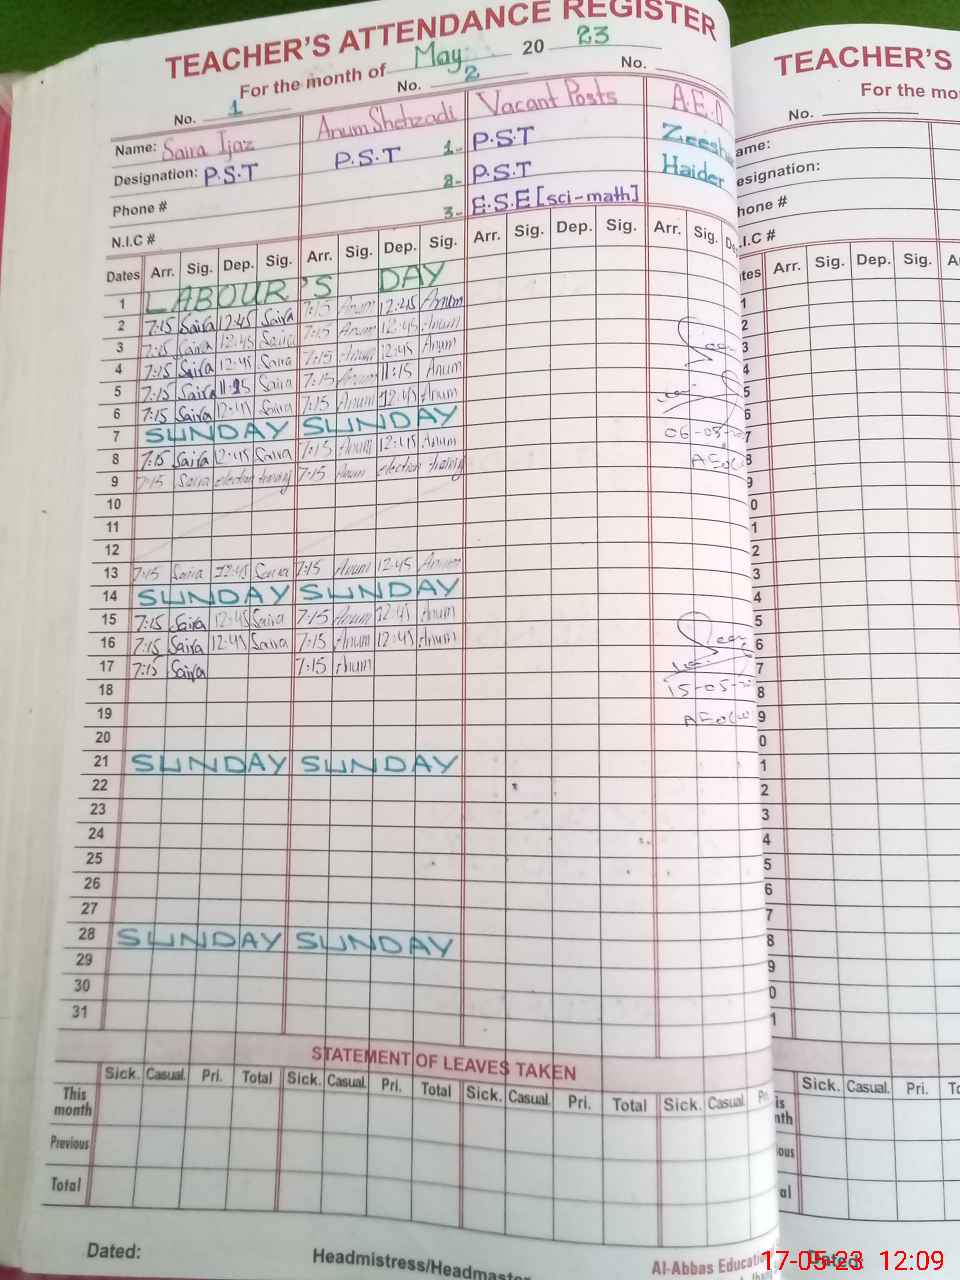 TEACHER'S ATTENDANCE REGISTER
For the month of May 20 23
No. 1 No. 2 No.
Name: Saira Ijaz Anum Shehzadi Vacant Posts A.E.O
Designation: P.S.T P.S.T 1- P.S.T Zeesh
Phone # 2- P.S.T Haider
3- E.S.E [sci-math]
N.I.C #
Dates Arr. Sig. Dep. Sig. Arr. Sig. Dep. Sig. Arr. Sig. Dep. Sig. Arr. Sig. De
1 LABOUR'S DAY
2 7:15 Saira 12:45 Saira 7:15 Anum 12:45 Anum
3 7:15 Saira 12:45 Saira 7:15 Anum 12:45 Anum
4 7:15 Saira 12:45 Saira 7:15 Anum 12:45 Anum
5 7:15 Saira 11:15 Saira 7:15 Anum 11:15 Anum
6 7:15 Saira 12:45 Saira 7:15 Anum 12:45 Anum
7 SUNDAY SUNDAY 06-05-
8 7:15 Saira 12:45 Saira 7:15 Anum 12:45 Anum
9 7:15 Saira election training 7:15 Anum election training
10
11
12
13 7:15 Saira 12:45 Saira 7:15 Anum 12:45 Anum
14 SUNDAY SUNDAY
15 7:15 Saira 12:45 Saira 7:15 Anum 12:45 Anum
16 7:15 Saira 12:45 Saira 7:15 Anum 12:45 Anum
17 7:15 Saira 7:15 Anum
18 15-05-
19
20
21 SUNDAY SUNDAY
22
23
24
25
26
27
28 SUNDAY SUNDAY
29
30
31
STATEMENT OF LEAVES TAKEN
Sick. Casual. Pri. Total Sick. Casual. Pri. Total Sick. Casual. Pri. Total Sick. Casual. P
This month
Previous
Total
Dated: Headmistress/Headmaste Al-Abbas Educatio
TEACHER'S
For the mo
No.
ame:
esignation:
hone #
.I.C #
tes Arr. Sig. Dep. Sig. A
1
2
3
4
5
6
7
8
9
0
1
2
3
4
5
6
7
8
9
0
1
2
3
4
5
6
7
8
9
0
1
Sick. Casual. Pri. To
is
nth
ous
al
Dated:
17-05-23 12:09